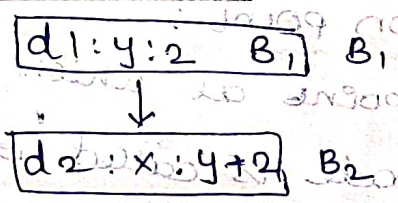 d1 : y : 2 B1 B1
d2 : x : y + 2 B2